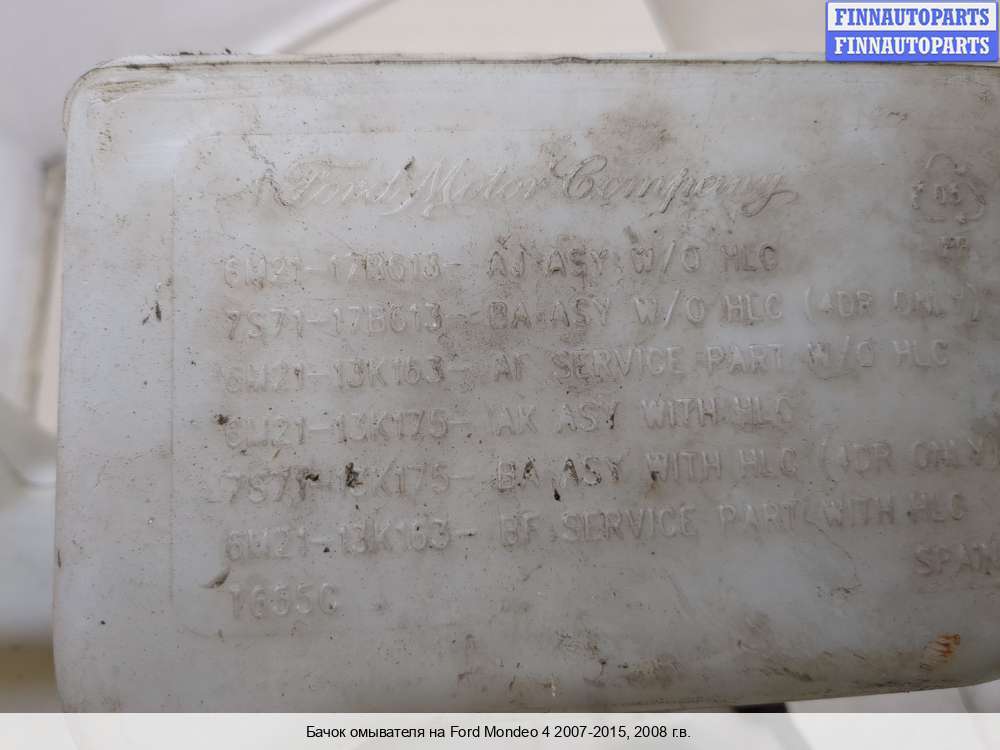 FINNAUTOPARTS
FINNAUTOPARTS
Ford Motor Company
05
6M21-17B613- AJ ASY W/O HLC
7S71-17B613- BA ASY W/O HLC (4DR ONLY)
6M21-13K163- AF SERVICE PART W/O HLC
6M21-13K175- AK ASY WITH HLC
7S71-13K175- BA ASY WITH HLC (4DR ONLY)
6M21-13K163- BF SERVICE PART WITH HLC
SPAIN
1655C
Бачок омывателя на Ford Mondeo 4 2007-2015, 2008 г.в.